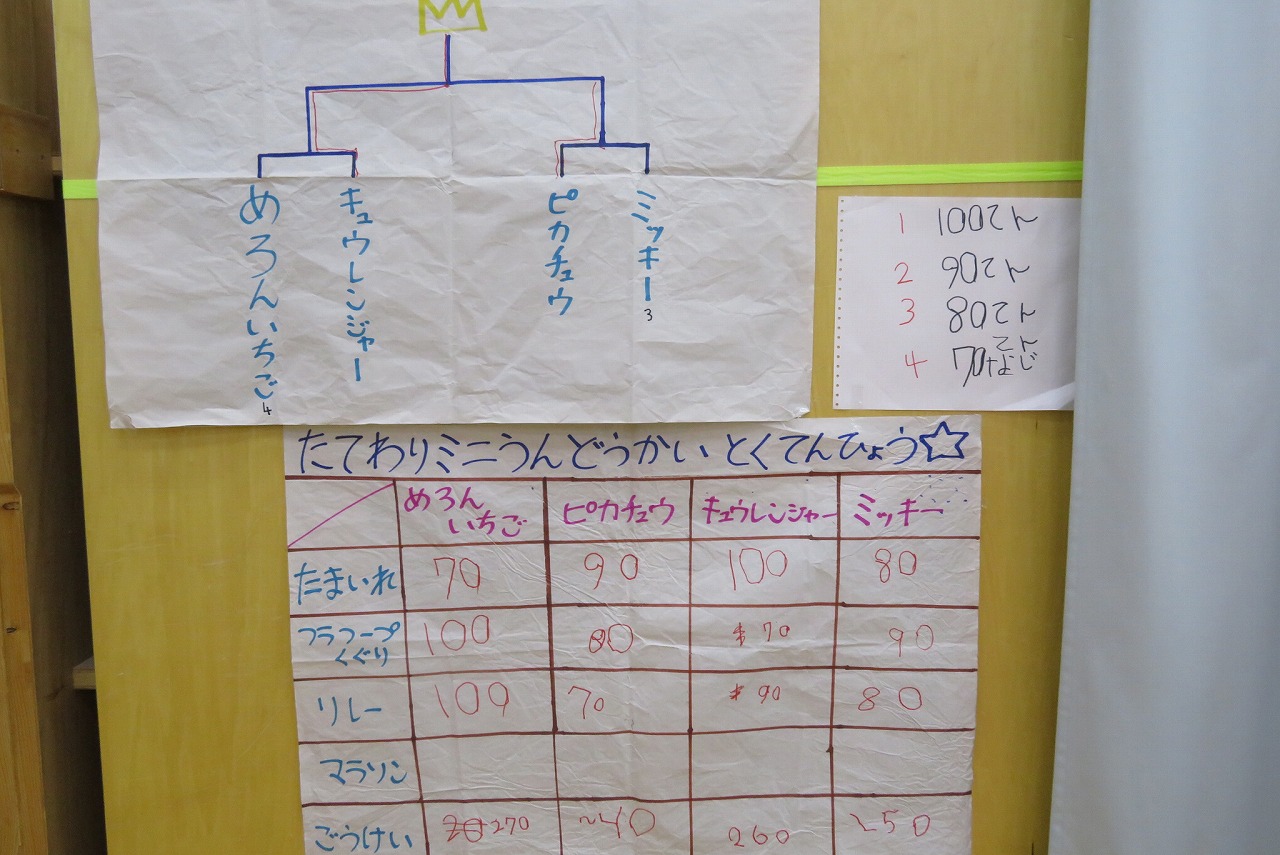 めろんいちご
4
キュウレンジャー
ピカチュウ
ミッキー
3
1 100てん
2 90てん
3 80てん
4 70てん
たてわりミニうんどうかい とくてんひょう☆
めろんいちご ピカチュウ キュウレンジャー ミッキー
たまいれ 70 90 100 80
フラフープくぐり 100 80 70 90
リレー 100 70 90 80
マラソン
ごうけい 270 240 260 250